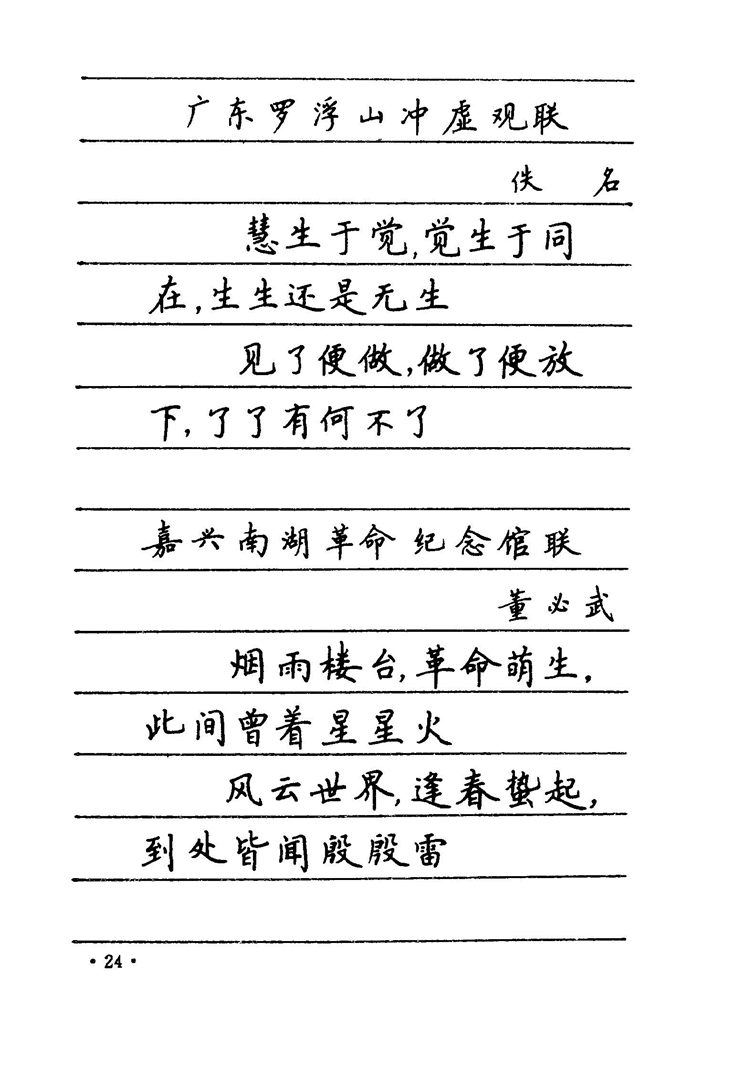 广东罗浮山冲虚观联
佚 名
慧生于觉,觉生于同
在,生生还是无生
见了便做,做了便放
下,了了有何不了
嘉兴南湖革命纪念馆联
董必武
烟雨楼台,革命萌生,
此间曾着星星火
风云世界,逢春蛰起,
到处皆闻殷殷雷
·24·